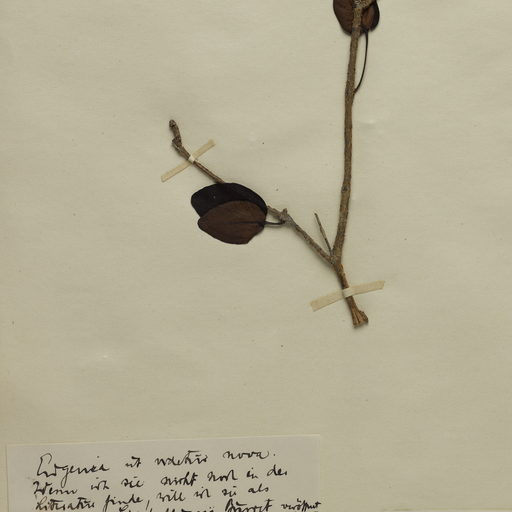 Eugenia ist wohl nova.
Wenn ich sie nicht noch in der
Literatur finde, will ich sie als
Burret veröffent